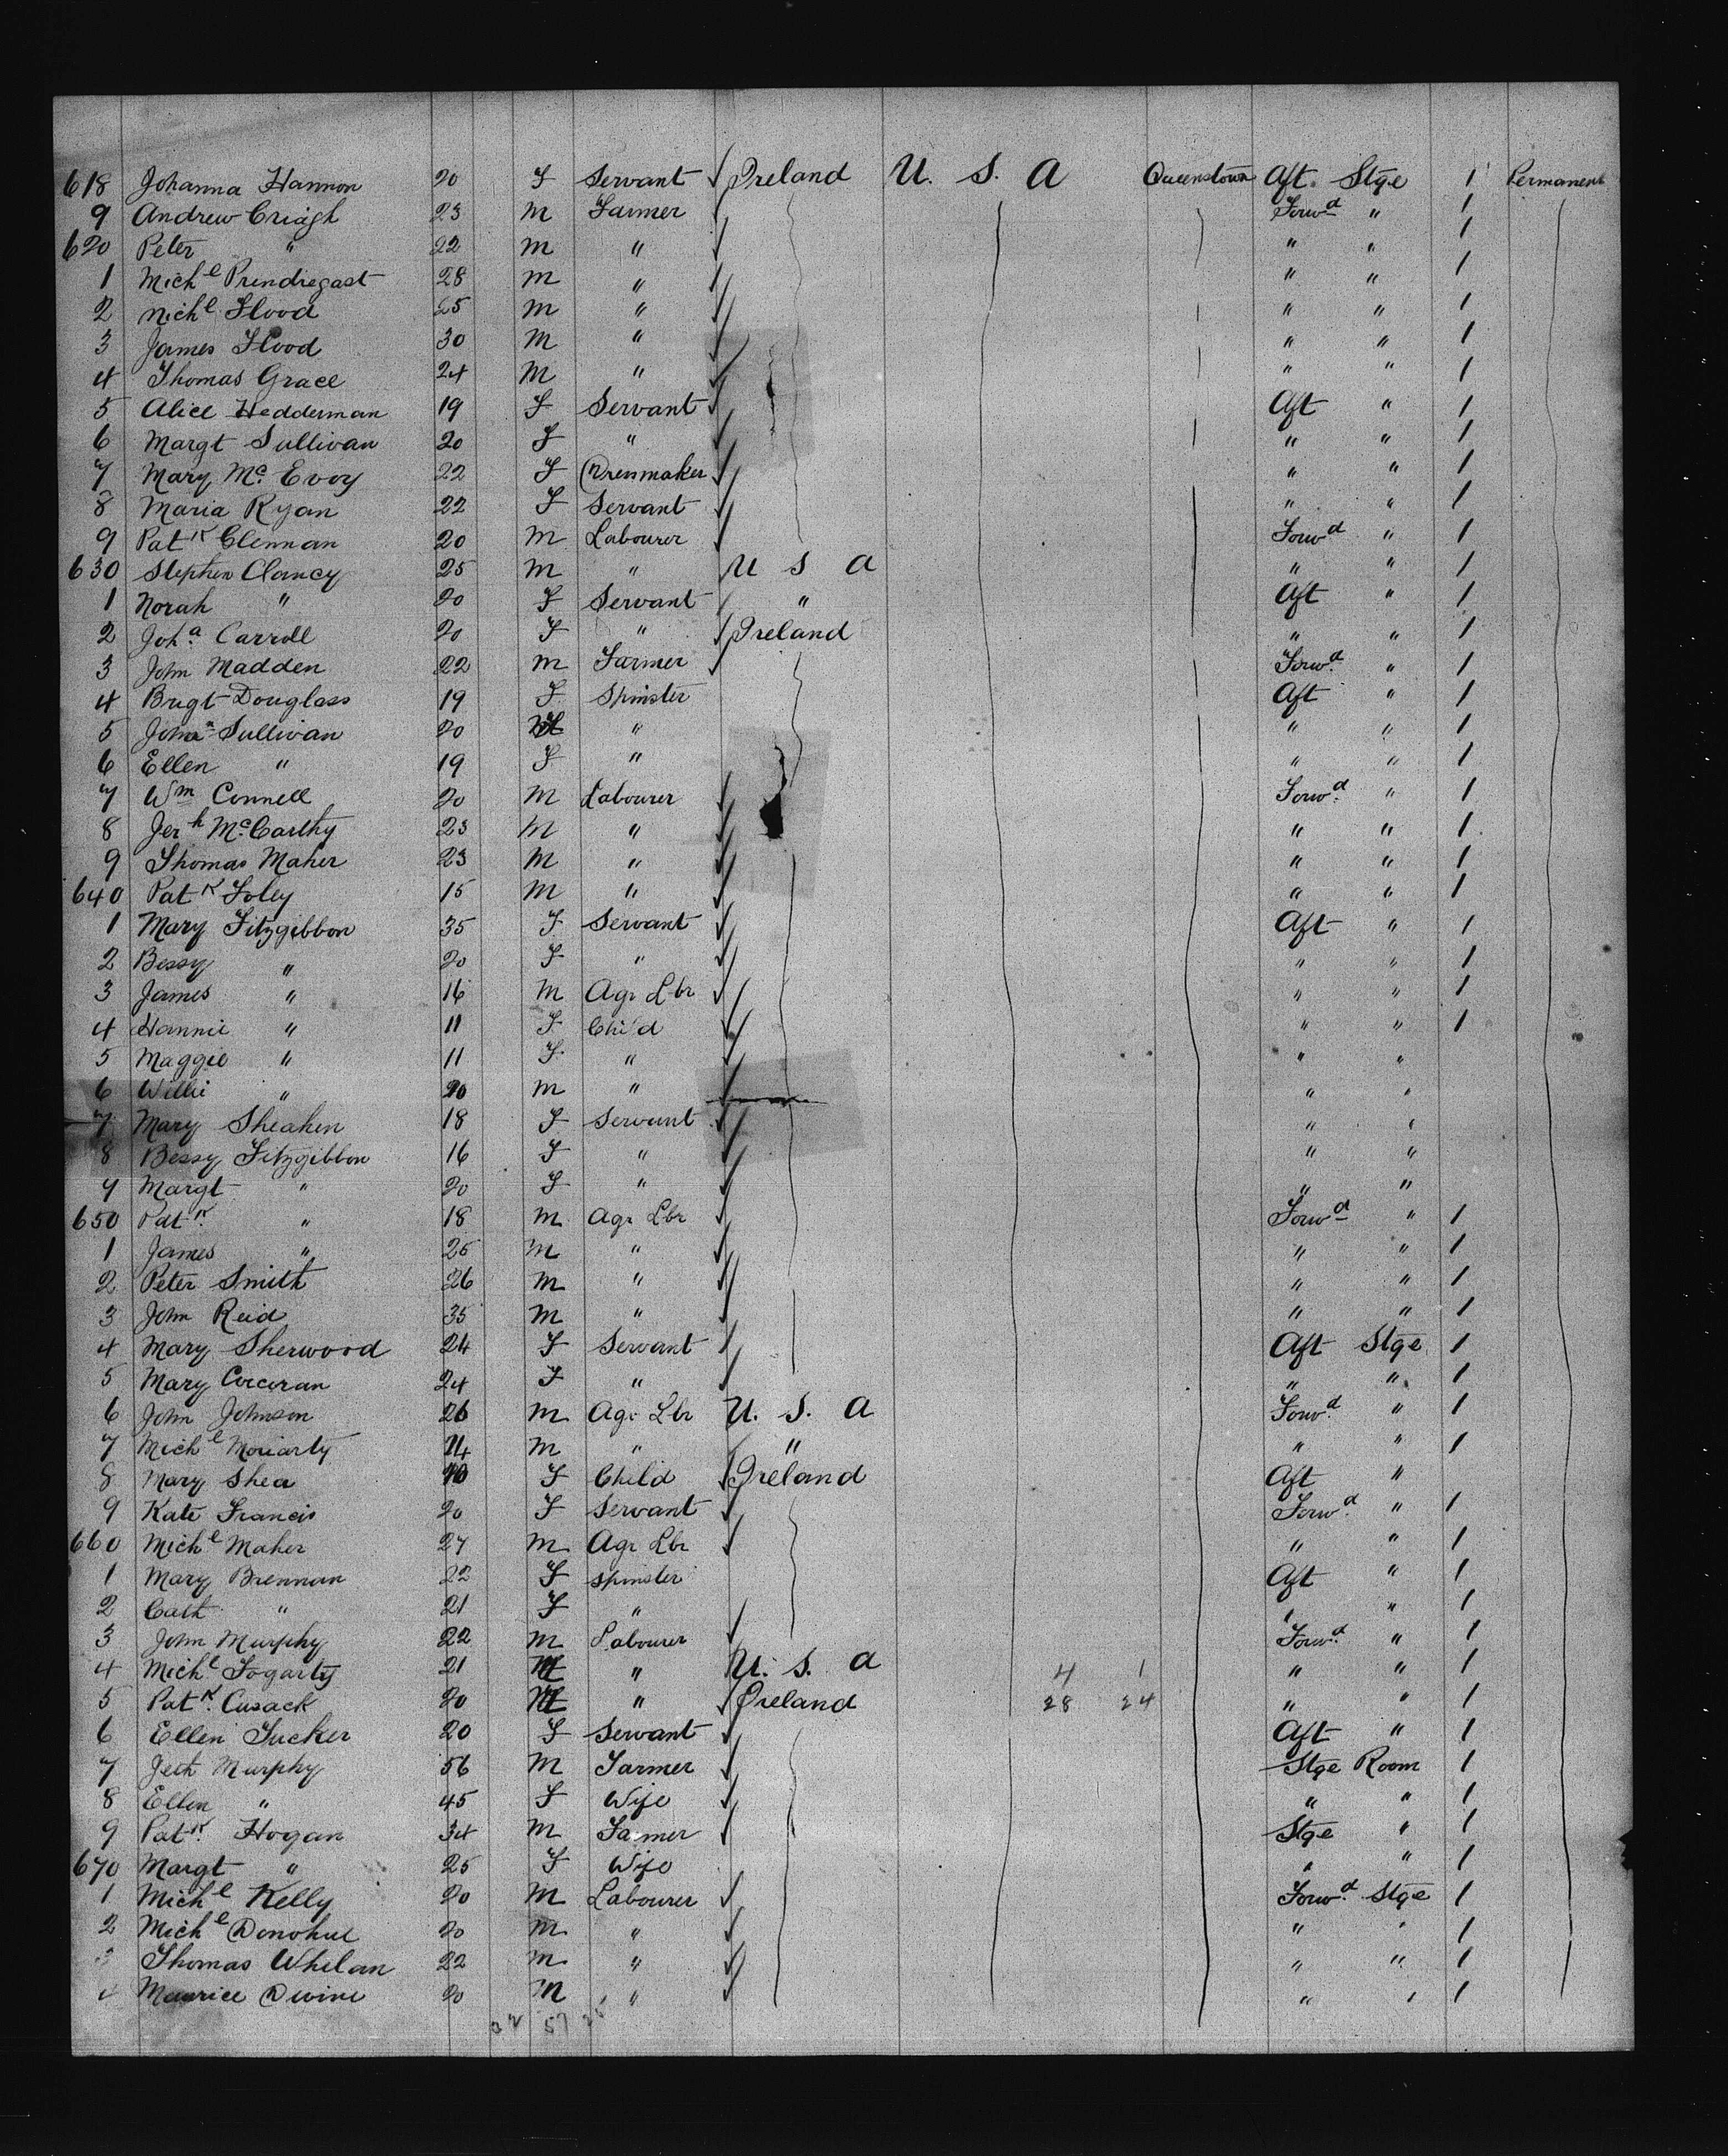 618 Johanna Hannon 20 F Servant Ireland U. S. A Queenstown Aft. Stge 1 Permanent
9 Andrew Criagh 23 M Farmer Forwd " 1
620 Peter " 22 M " " " 1
1 Michl Prendregast 28 M " " " 1
2 Michl Flood 25 M " " " 1
3 James Flood 30 M " " " 1
4 Thomas Grace 24 M " " " 1
5 Alice Hedderman 19 F Servant Aft " 1
6 Margt Sullivan 20 F " " " 1
7 Mary Mc Evoy 22 F Dressmaker " " 1
8 Maria Ryan 22 F Servant " " 1
9 Patk Clennan 20 M Labourer Forwd " 1
630 Stephen Clancy 25 M " U S A " " 1
1 Norah " 20 F Servant " Aft " 1
2 Joha Carroll 20 F " Ireland " " 1
3 John Madden 22 M Farmer Forwd " 1
4 Brigt Douglass 19 F Spinster Aft " 1
5 Joha Sullivan 20 " " " 1
6 Ellen " 19 F " " " 1
7 Wm Connell 20 M Labourer Forwd " 1
8 Jerh McCarthy 23 M " " " 1
9 Thomas Maher 23 M " " " 1
640 Patk Foley 15 M " " " 1
1 Mary Fitzgibbon 35 F Servant Aft " 1
2 Bessy " 20 F " " " 1
3 James " 16 M Agr Lbr " " 1
4 Hannie " 11 F Child " " 1
5 Maggie " 11 F " " "
6 Willie " M " " "
7 Mary Sheahen 18 F Servant " "
8 Bessy Fitzgibbon 16 F " " "
9 Margt " 20 F " " "
650 Patk " 18 M Agr Lbr Forwd " 1
1 James " 25 M " " " 1
2 Peter Smith 26 M " " " 1
3 John Reid 35 M " " " 1
4 Mary Sherwood 24 F Servant Aft Stge 1
5 Mary Corcoran 24 F " " " 1
6 John Johnson 26 M Agr Lbr U. S. A Forwd " 1
7 Michl Moriarty M " " " " 1
8 Mary Shea 10 F Child Ireland Aft "
9 Kate Francis 20 F Servant Forwd " 1
660 Michl Maher 27 M Agr Lbr " " 1
1 Mary Brennan 22 F Spinster Aft " 1
2 Cath " 21 F " " " 1
3 John Murphy 22 M Labourer Forwd " 1
4 Michl Fogarty 21 M " U. S. A 4 1 " " 1
5 Patk Cusack 20 M " Ireland 28 24 " " 1
6 Ellen Tucker 20 F Servant Aft " 1
7 Jerh Murphy 56 M Farmer Stge Room 1
8 Ellen " 45 F Wife " " 1
9 Patk Hogan 34 M Farmer Stge " 1
670 Margt " 25 F Wife " " 1
1 Michl Kelly 20 M Labourer Forwd Stge 1
2 Michl Donohue 20 M " " " 1
3 Thomas Whelan 22 M " " " 1
4 Maurice Divine 20 M " " " 1
57